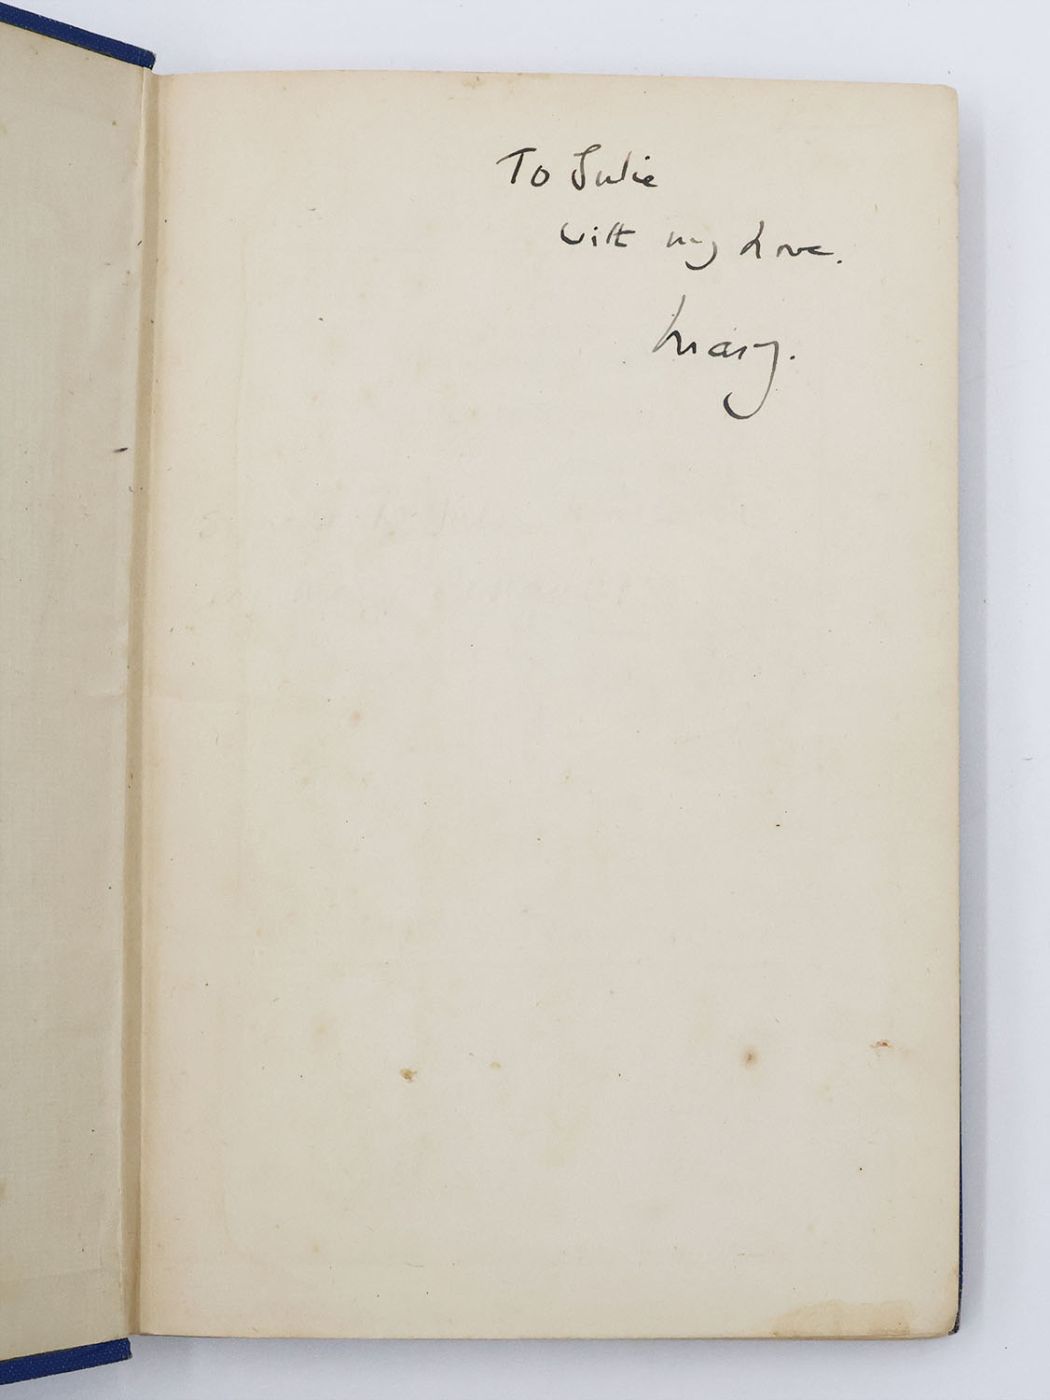 To Julie
With my Love.
Mary.